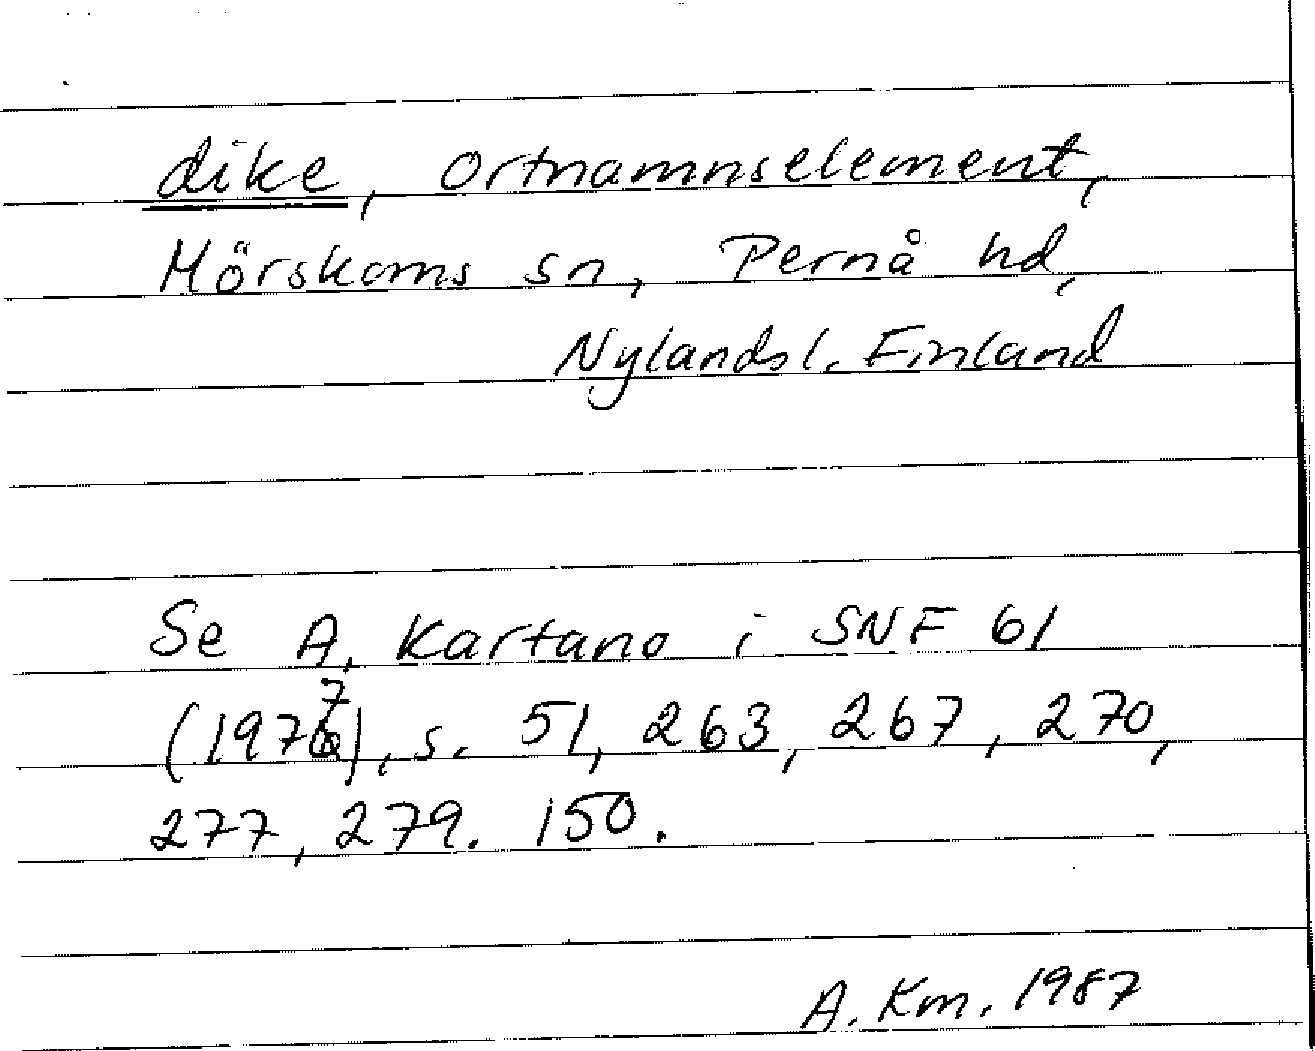 dike, ortnamnselement,
Mörskoms sn, Pernå hd,
Nylandsl. Finland
Se A. Kartano i SNF 61
(1977), s. 51, 263, 267, 270,
277, 279. 150.
A. Km. 1987